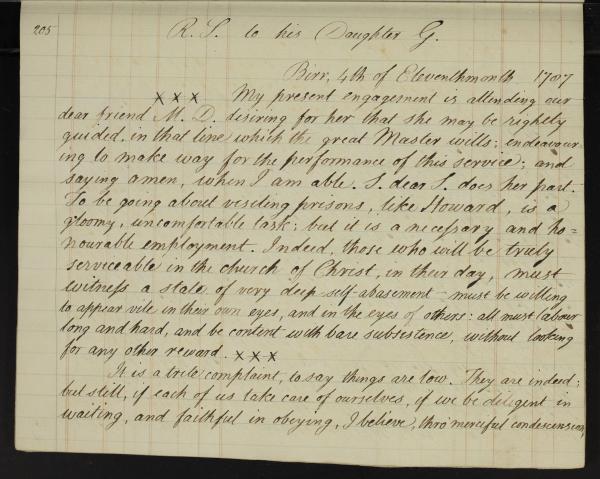 205
R. S. to his Daughter G.
Birr, 4th of Eleventhmonth 1787
x x x My present engagement is attending our
dear friend M. D. desiring for her that she may be rightly
guided in that line which the great Master wills; endeavour-
ing to make way for the performance of this service; and
saying amen, when I am able. S. dear S. does her part.
To be going about visiting prisons, like Howard, is a
gloomy, uncomfortable task; but it is a necessary and ho=
nourable employment. Indeed, those who will be truly
serviceable in the church of Christ, in their day, must
witness a state of very deep self-abasement - must be willing
to appear vile in their own eyes, and in the eyes of others: all must labour
long and hard, and be content with bare subsistence, without looking
for any other reward. x x x
It is a trite complaint, to say things are low. They are indeed;
but still, if each of us take care of ourselves, if we be diligent in
waiting, and faithful in obeying, I believe, thro' merciful condescension,